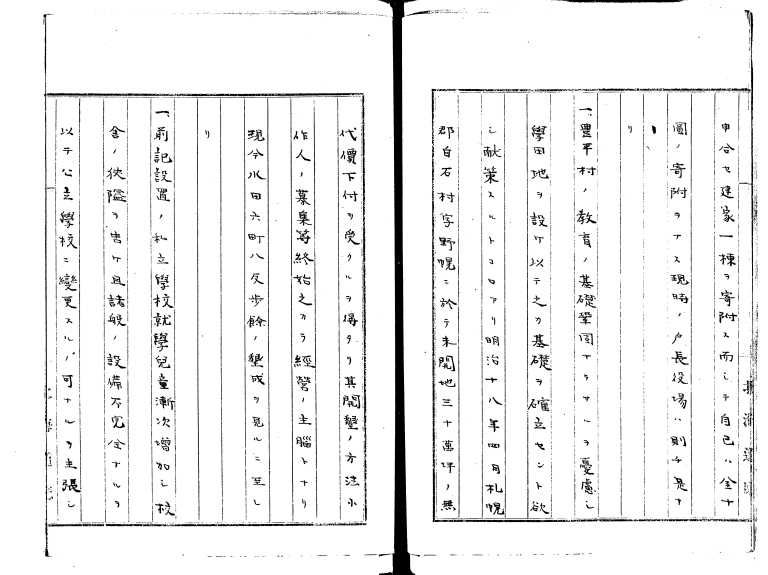 申合セ建家一棟ヲ寄附ス而シテ自己ハ金十
圓ノ寄附ヲナス現時ノ戸長役場ハ則チ是ナ
リ
一、豊平村ノ教育ノ基礎鞏固ナラサルヲ憂慮シ
學田地ヲ設ケ以テ之カ基礎ヲ確立セント欲
シ献策スルトコロアリ明治十八年四月札幌
郡白石村字野幌ニ於テ未開地三十萬坪ノ無
代價下付ヲ受クルヲ得タリ其開墾ノ方法小
作人ノ募集等終始之カラ經營ノ主腦トナリ
現今水田六町八反歩餘ノ墾成ヲ見ルニ至レ
リ
一、前記設置ノ私立學校就學兒童漸次增加シ校
舎ノ狹隘ヲ告ケ且諸般ノ設備不完全ナルヲ
以テ公立學校ニ變更スルノ可ナルヲ主張シ